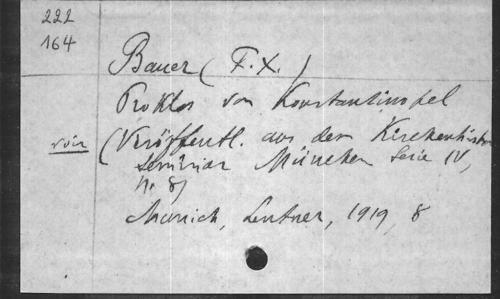 222
164
Bauer (F.X.)
Proklos von Konstantinopel
voir (Veröffentl. aus dem Kirchenhistor
Seminar München Serie IV,
Nr. 8)
Munich, Lentner, 1919, 8